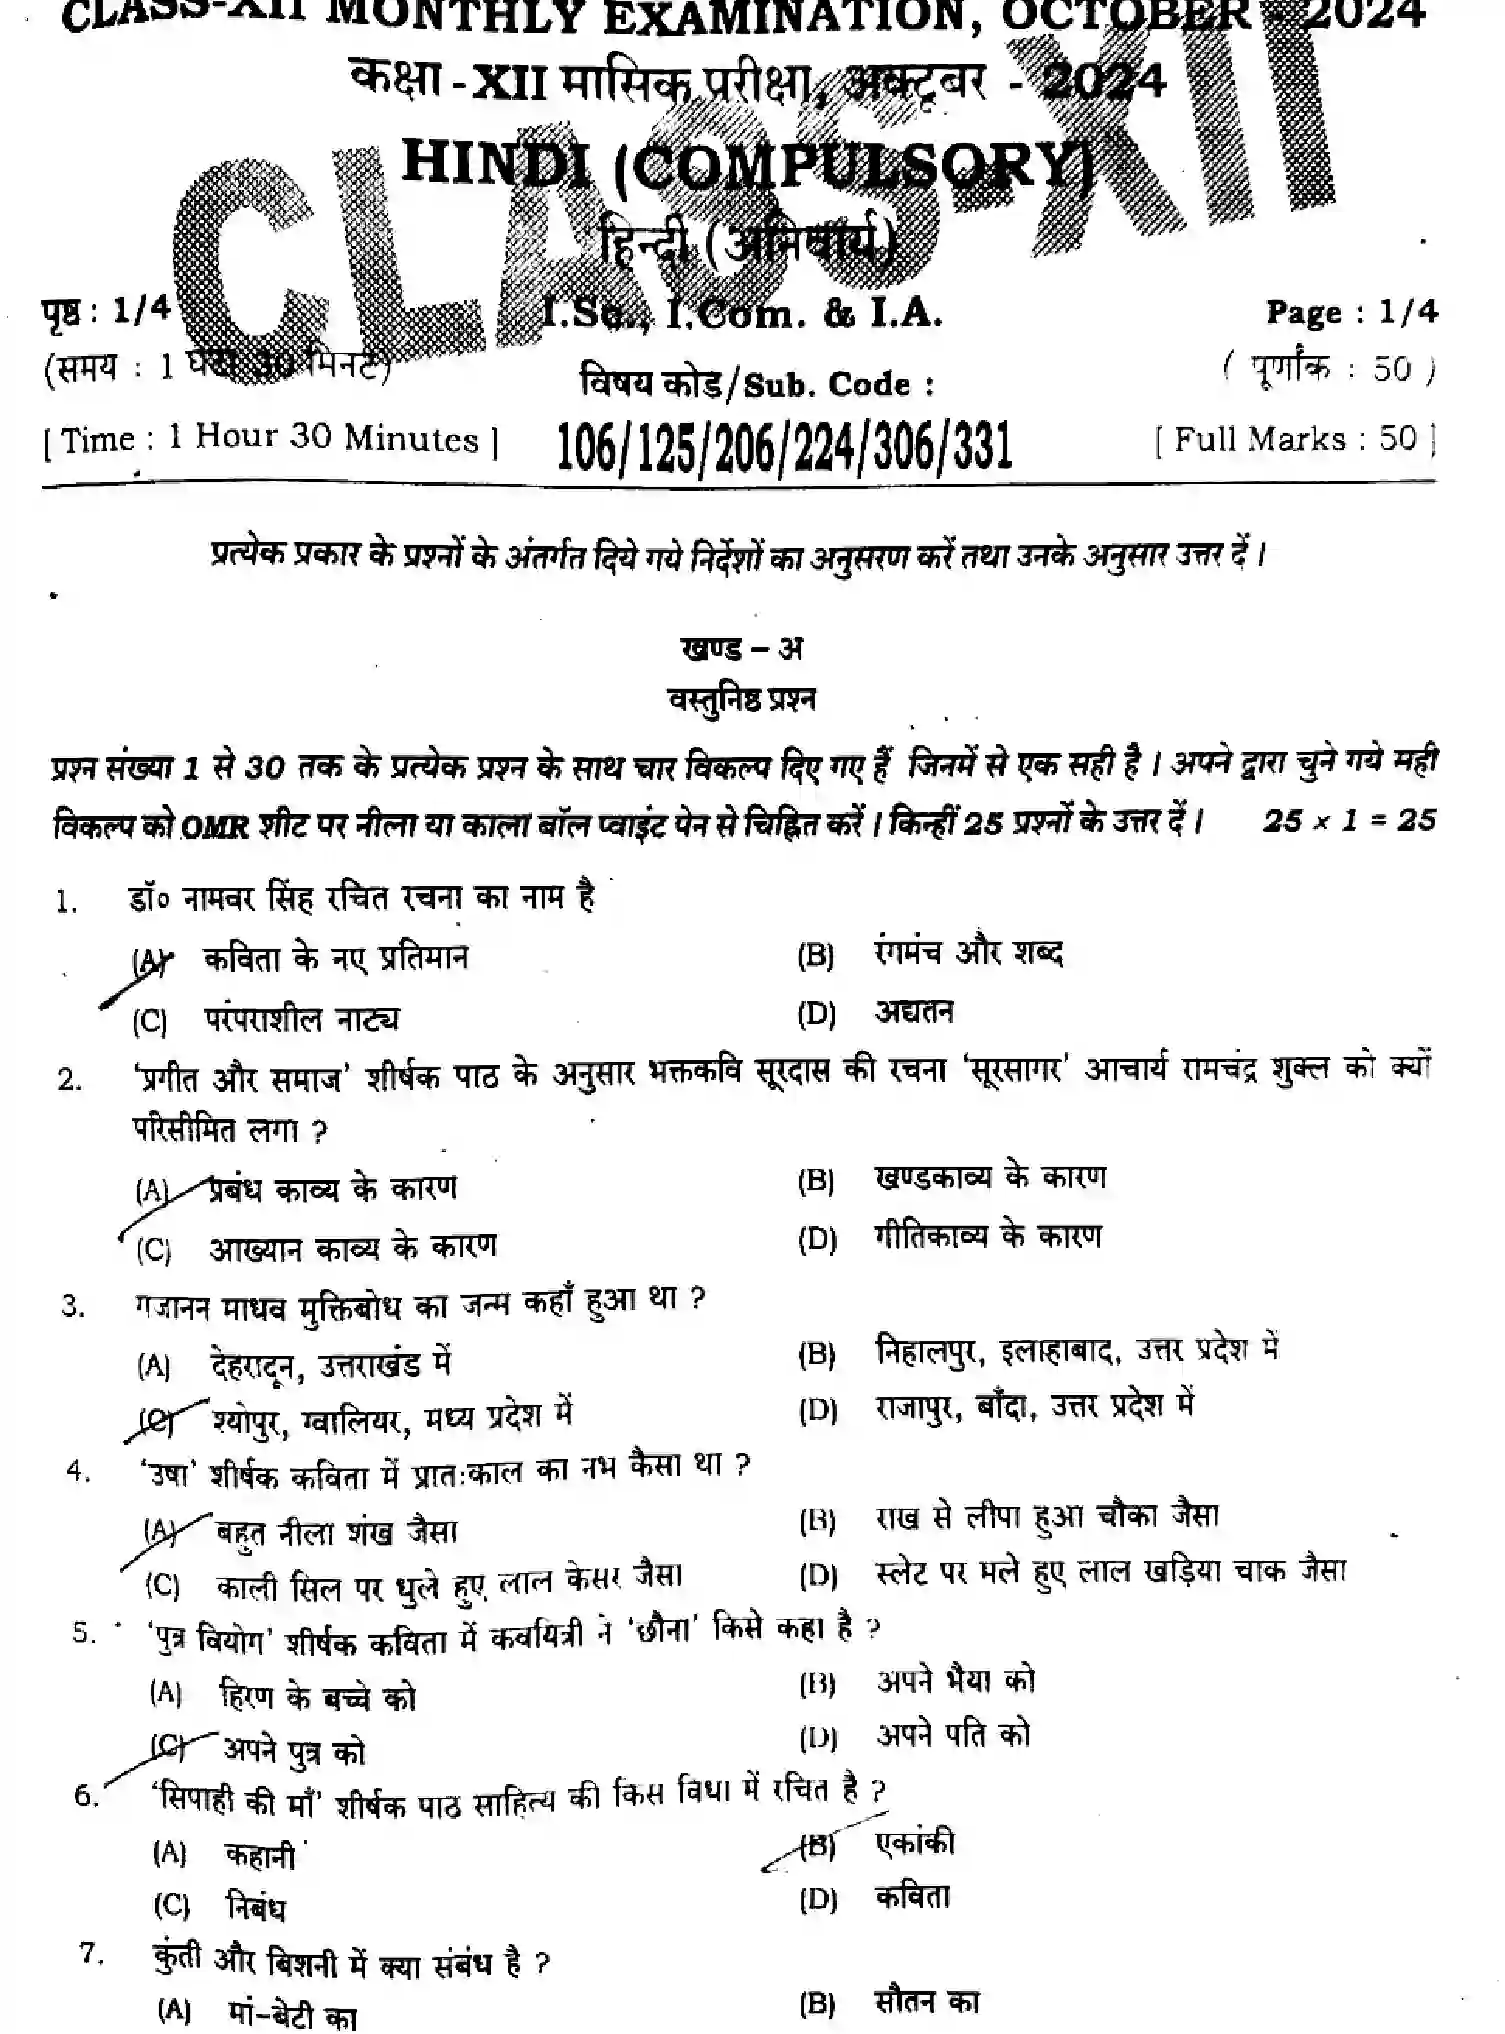 CLASS-XII MONTHLY EXAMINATION, OCTOBER - 2024
कक्षा -XII मासिक परीक्षा, अक्टूबर - 2024
HINDI (COMPULSORY)
हिन्दी (अनिवार्य)
CLASS-XII
पृष्ठ : 1/4 I.Sc., I.Com. & I.A. Page : 1/4
(समय : 1 घंटा 30 मिनट) विषय कोड/Sub. Code : ( पूर्णांक : 50 )
[ Time : 1 Hour 30 Minutes ] 106/125/206/224/306/331 [ Full Marks : 50 ]
प्रत्येक प्रकार के प्रश्नों के अंतर्गत दिये गये निर्देशों का अनुसरण करें तथा उनके अनुसार उत्तर दें ।
खण्ड – अ
वस्तुनिष्ठ प्रश्न
प्रश्न संख्या 1 से 30 तक के प्रत्येक प्रश्न के साथ चार विकल्प दिए गए हैं जिनमें से एक सही है । अपने द्वारा चुने गये सही
विकल्प को OMR शीट पर नीला या काला बॉल प्वाइंट पेन से चिह्नित करें । किन्हीं 25 प्रश्नों के उत्तर दें । 25 × 1 = 25
1. डॉ० नामवर सिंह रचित रचना का नाम है
(A) कविता के नए प्रतिमान (B) रंगमंच और शब्द
(C) परंपराशील नाट्य (D) अद्यतन
2. ‘प्रगीत और समाज’ शीर्षक पाठ के अनुसार भक्तकवि सूरदास की रचना ‘सूरसागर’ आचार्य रामचंद्र शुक्ल को क्यों
परिसीमित लगा ?
(A) प्रबंध काव्य के कारण (B) खण्डकाव्य के कारण
(C) आख्यान काव्य के कारण (D) गीतिकाव्य के कारण
3. गजानन माधव मुक्तिबोध का जन्म कहाँ हुआ था ?
(A) देहरादून, उत्तराखंड में (B) निहालपुर, इलाहाबाद, उत्तर प्रदेश में
(C) श्योपुर, ग्वालियर, मध्य प्रदेश में (D) राजापुर, बाँदा, उत्तर प्रदेश में
4. ‘उषा’ शीर्षक कविता में प्रातःकाल का नभ कैसा था ?
(A) बहुत नीला शंख जैसा (B) राख से लीपा हुआ चौका जैसा
(C) काली सिल पर धुले हुए लाल केसर जैसा (D) स्लेट पर मले हुए लाल खड़िया चाक जैसा
5. ‘पुत्र वियोग’ शीर्षक कविता में कवयित्री ने ‘छौना’ किसे कहा है ?
(A) हिरण के बच्चे को (B) अपने भैया को
(C) अपने पुत्र को (D) अपने पति को
6. ‘सिपाही की माँ’ शीर्षक पाठ साहित्य की किस विधा में रचित है ?
(A) कहानी (B) एकांकी
(C) निबंध (D) कविता
7. कुंती और बिशनी में क्या संबंध है ?
(A) मां-बेटी का (B) सौतन का